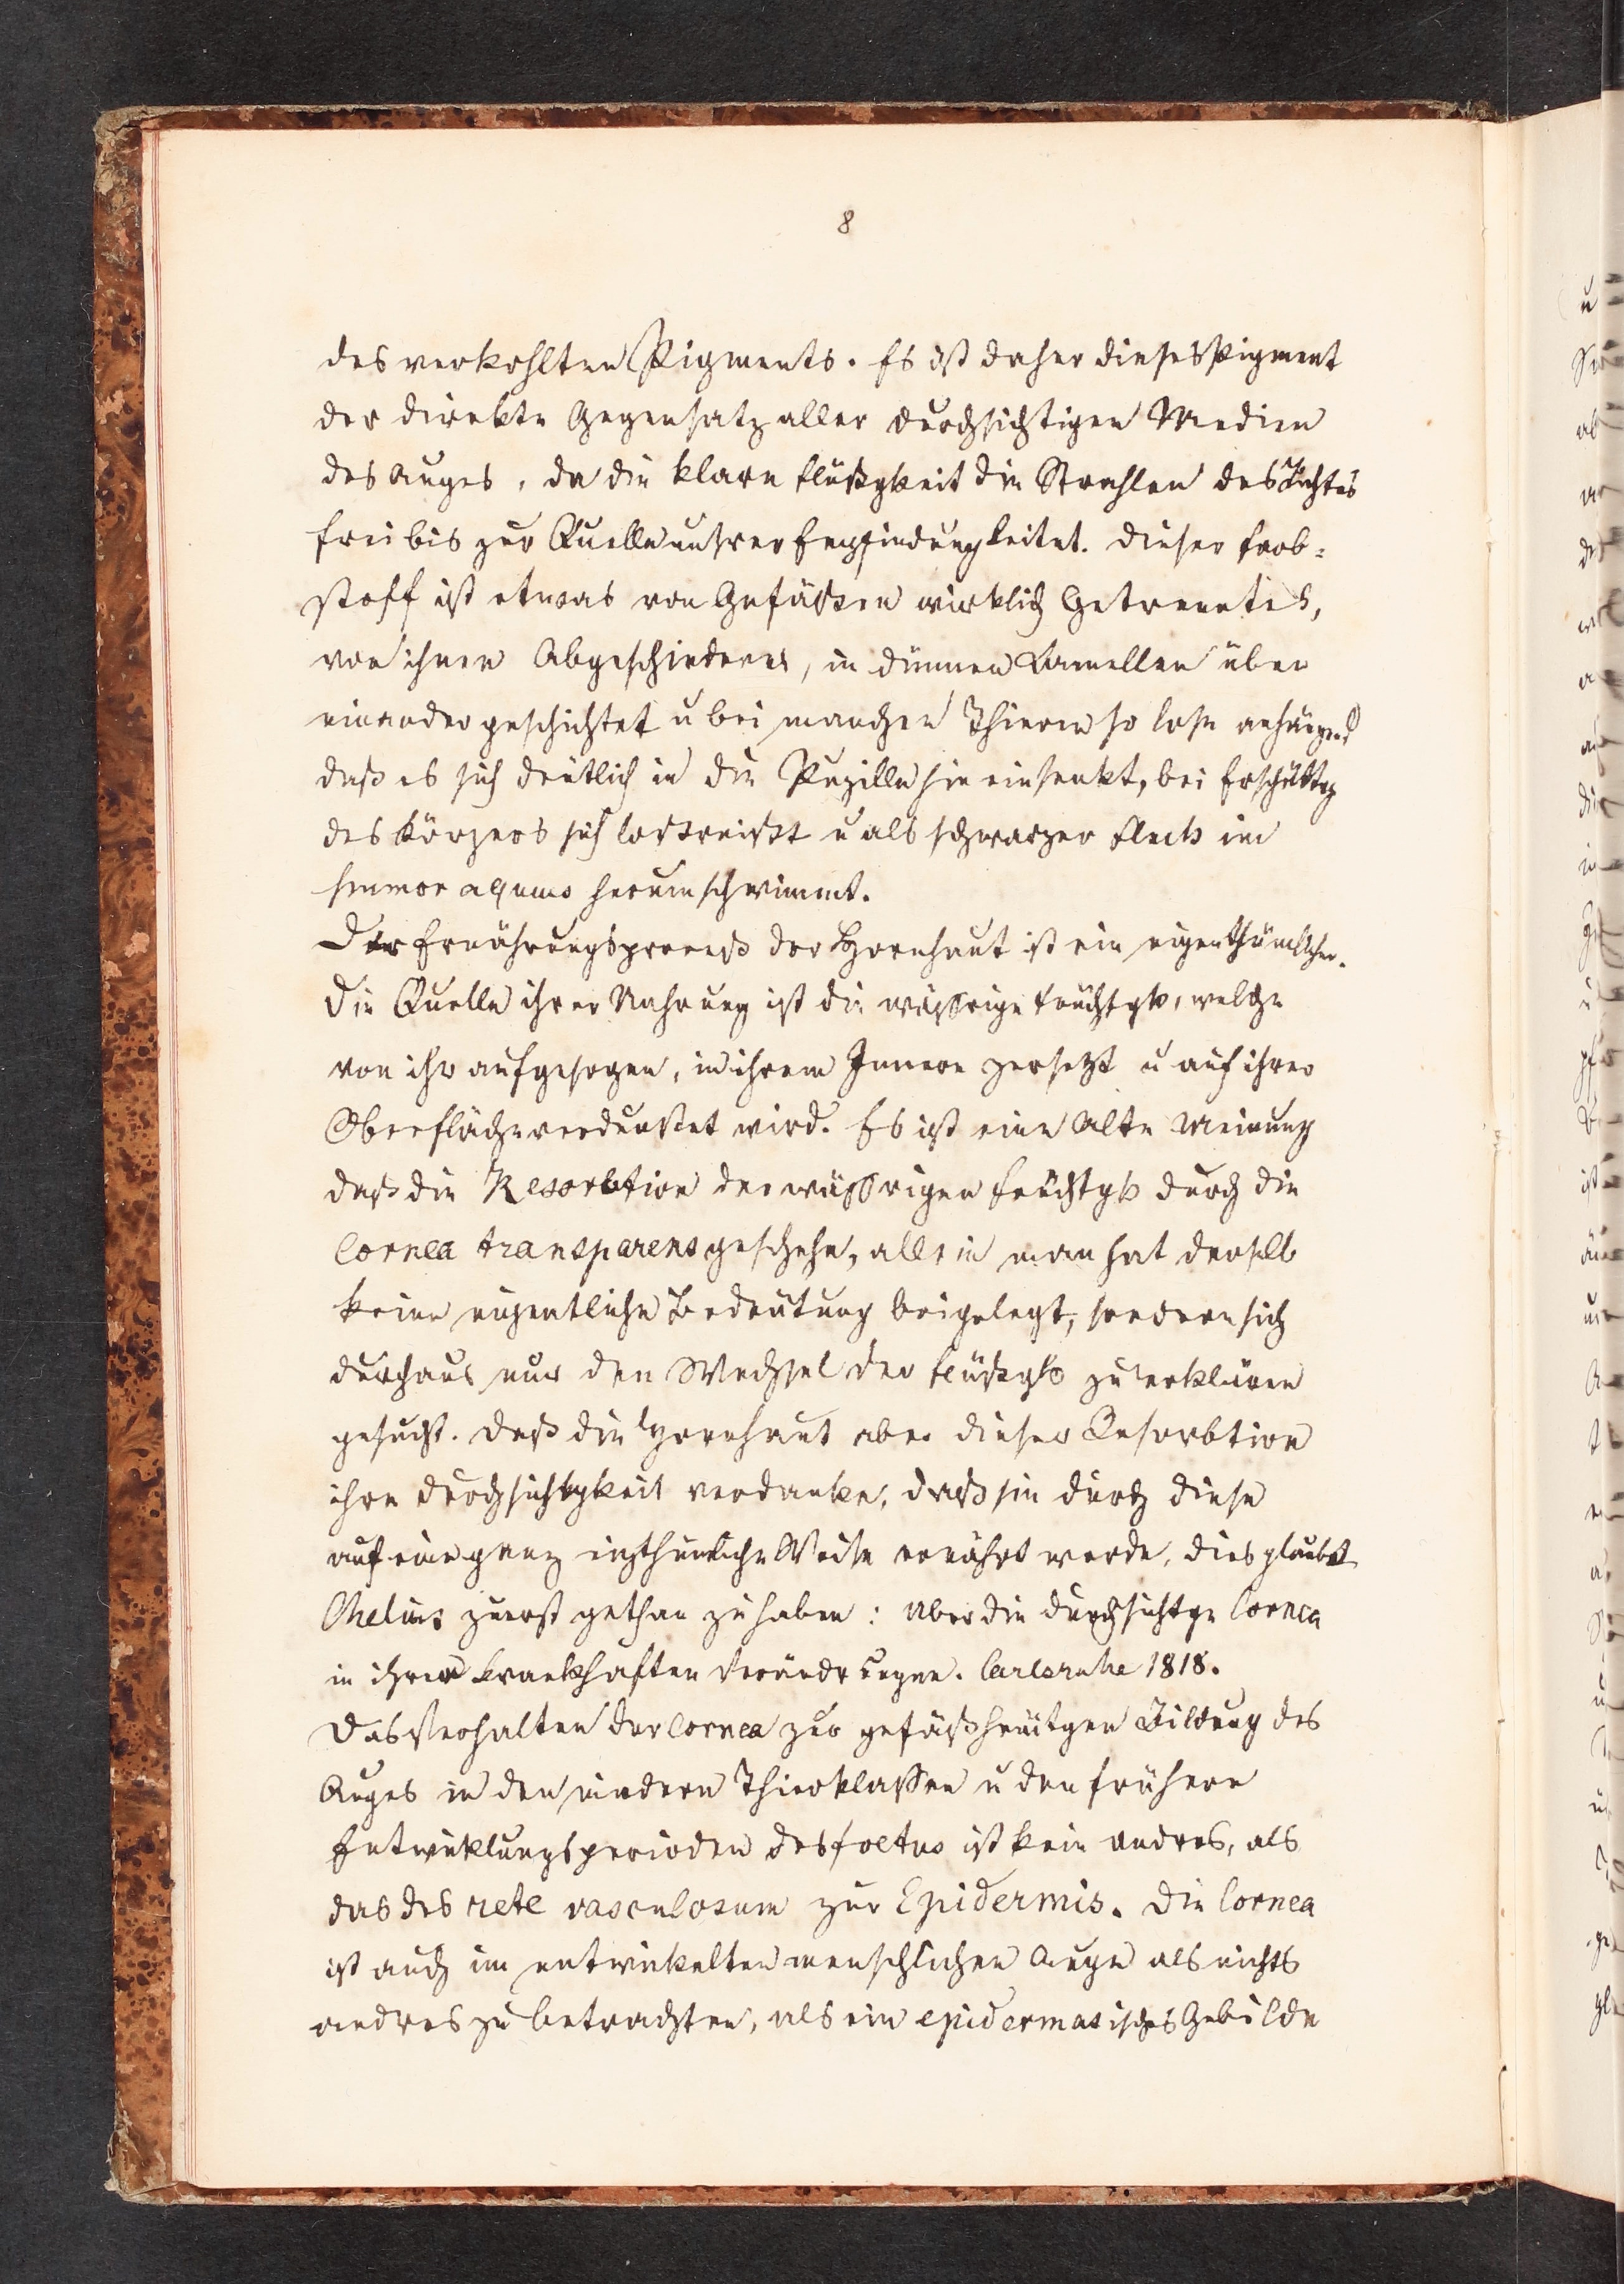 8
des verkohlten Pigments. Es ist daher dieses Pigment
der direkte Gegensatz aller durchsichtigen Medien
des Auges, da die klare Flüßgkeit die Strahlen des Lichtes
frei bis zur Quelle unsrer Empfindung leitet. Dieser Farb-
stoff ist etwas von Gefäßen wirklich Getrenntes,
von ihnen Abgeschiedenes, in dünnen Lamellen über
einander geschichtet u bei manchen Thieren so lose anhängend
daß es sich deutlich in die Pupille hineinsenkt, bei Erschüttrg
des Körpers sich losreißt u als schwarzer Fleck im
humor aqueus herumschwimmt.
Der Ernährungsproceß der Hornhaut ist ein eigenthümlicher.
Die Quelle ihrer Nahrung ist die wäßrige Feuchtgk, welche
von ihr aufgesogen, in ihrem Innern zersetzt u auf ihrer
Oberfläche verdunstet wird. Es ist eine alte Meinung
daß die Resorbtion der wäßrigen Feuchtgk durch die
Cornea transparens geschehe, allein man hat derselb
keine eigentliche Bedeutung beigelegt, sondern sich
durchaus nur den Wechsel der Flüßgk zu erklären
gesucht. Daß die Hornhaut aber dieser Resorbtion
ihre Durchsichtgkeit verdanke, daß sie durch diese
auf eine ganz eigthümliche Weise ernährt werde, dies glaubt
Chelius zuerst gethan zu haben: Über die durchsichtge Cornea
in ihren krankhaften Verändrungen. Carlsruhe 1818.
Das Verhalten der Cornea zur gefäßhäutgen Bildung des
Auges in den niedern Thierklassen u den frühern
Entwicklungsperioden des foetus ist kein andres, als
das des rete vasculosum zur Epidermis. Die Cornea
ist auch im entwickelten menschlichen Auge als nichts
andres zu betrachten, als ein epidermatisches Gebilde